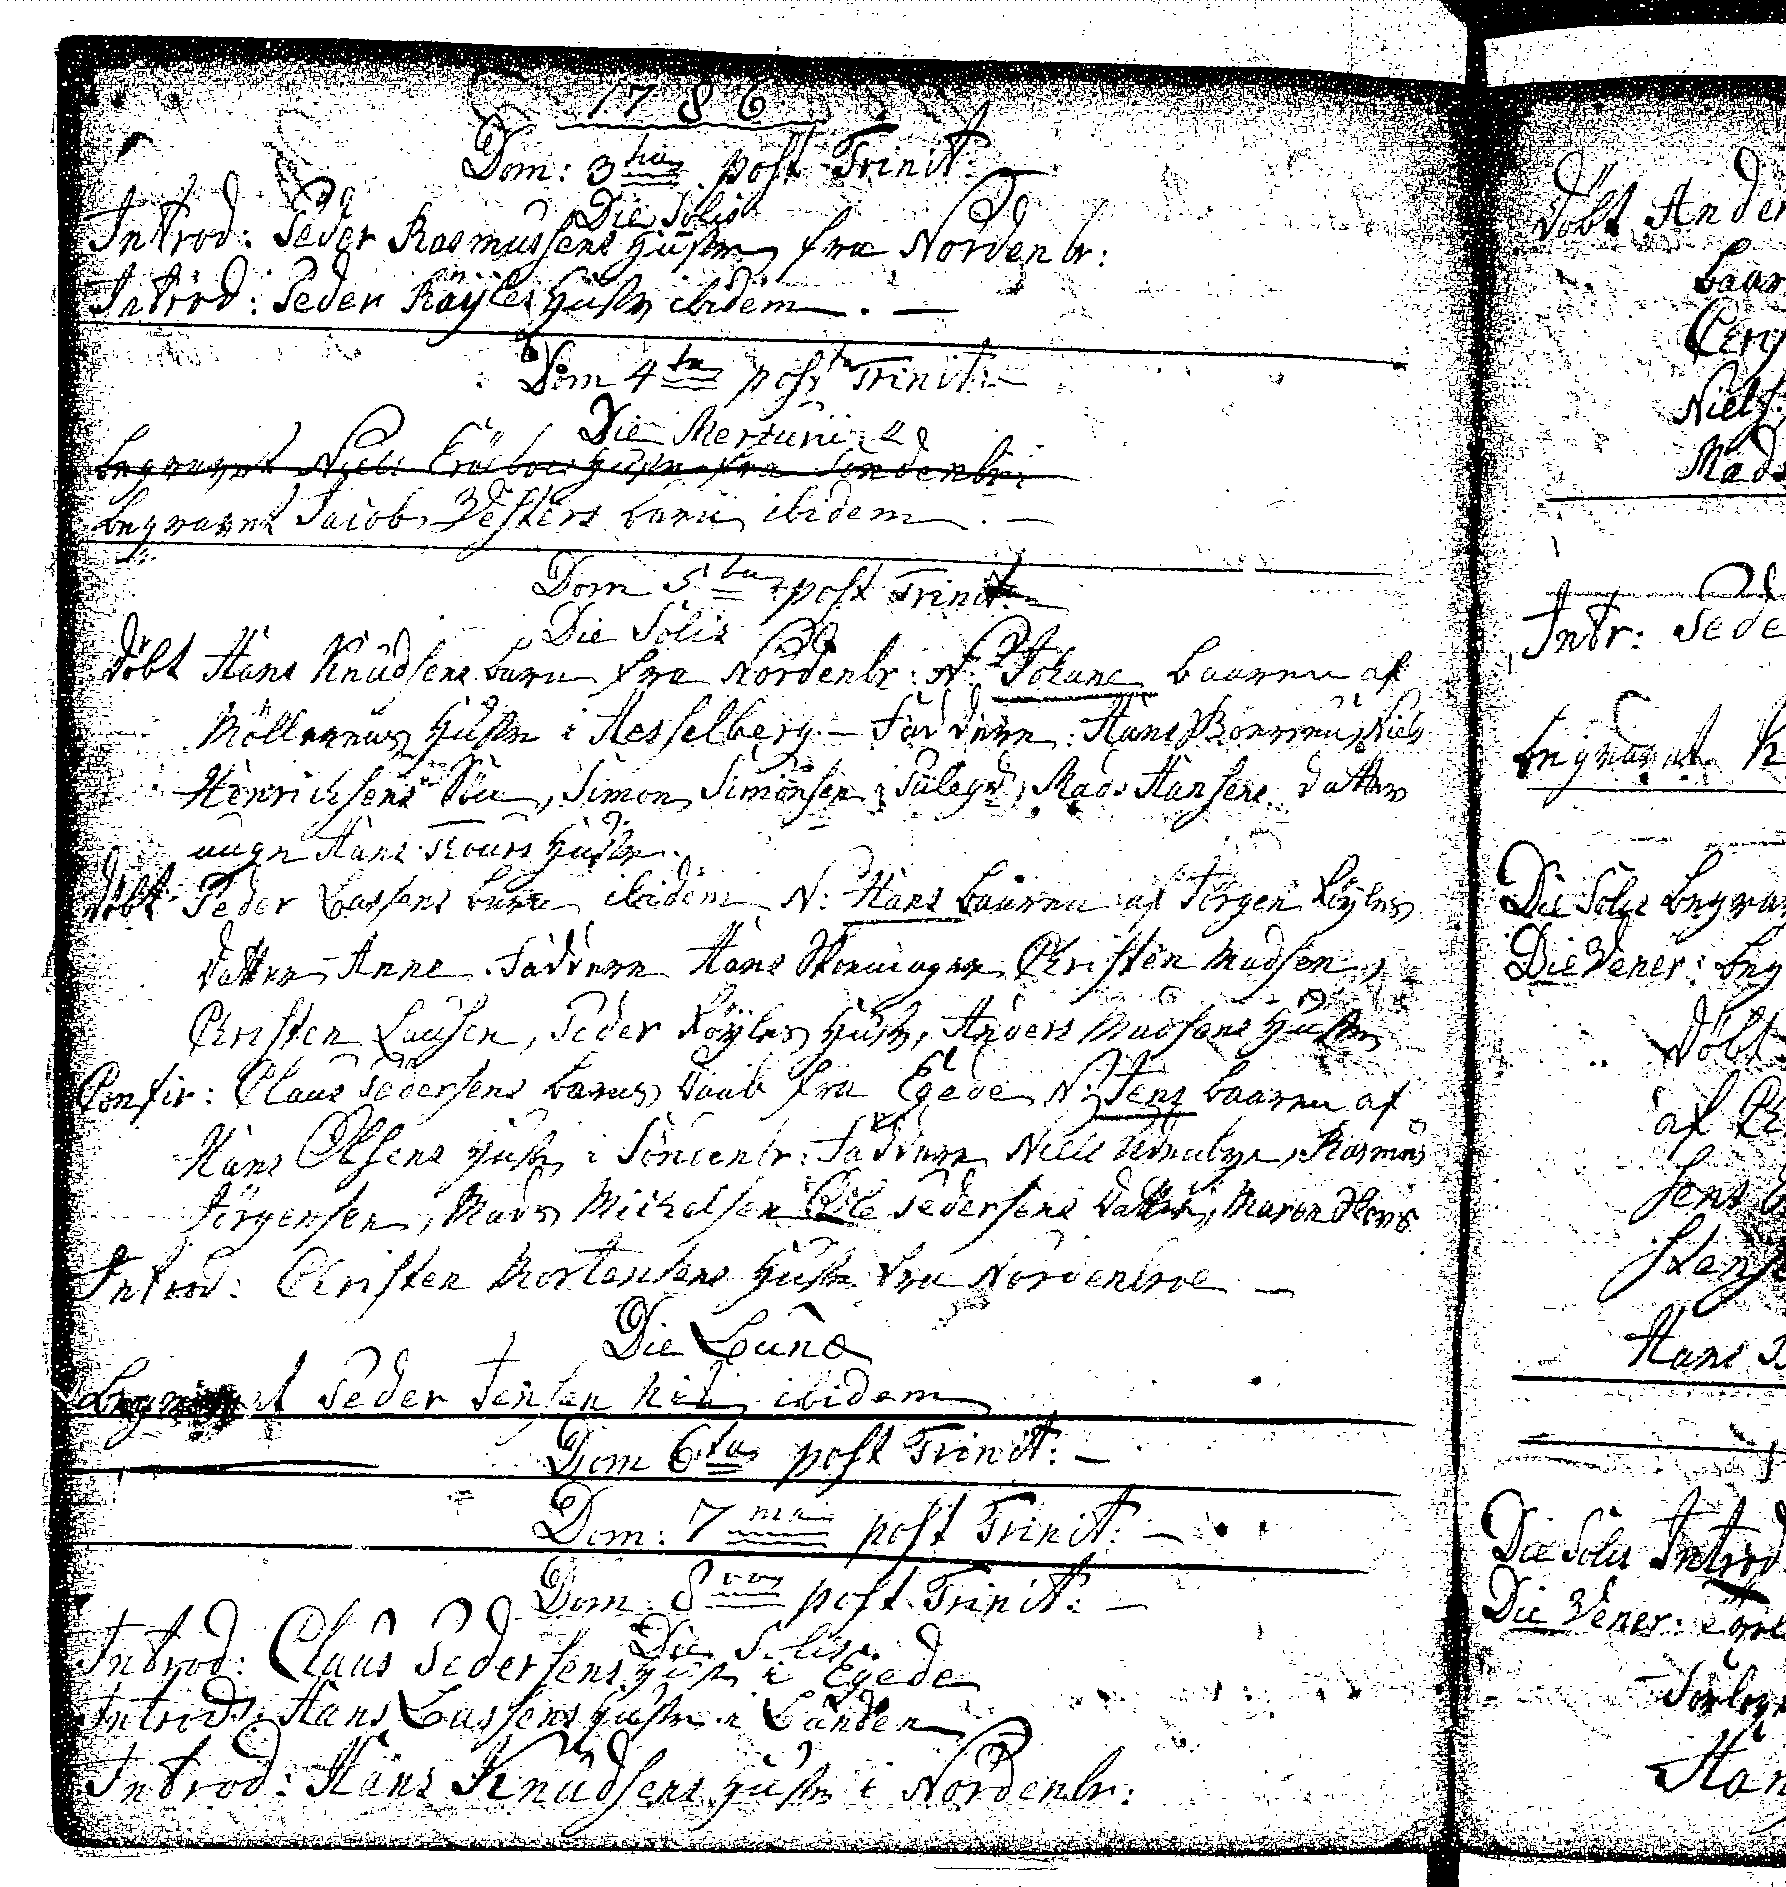 1786
Dom: 3tia post Trinit:
Die Solis
Introd: Peder Rasmussens Hustr fra Nordenbr:
Introd: Peder Röyles Hustr ibidem. —
Dom 4ta post Trinit: —
Die Mercurii
begravet Niels Hustr fra Söndenbr:
begravet Jacob Vesters barn ibidem. —
Dom 5ta post Trinit:
Die Solis
Döbt Hans Knudsens barn fra Nordenbr: N: Johane baaren af
Möllerens Hustr i Hesselberg. — Fadderne: Hans Niels
Henrichsens Sön, Simon Simonsen i Mads Hansens datter
Hans Skous Hustr.
Döbt Peder Lassens barn ibidem N: Hans baaren af Jörgen Röyles
datter Anne. Fadderne Hans Christen Madsen,
Christen Lausen, Peder Röyles Hustr, Anders Madsens Hustr
Confir: Claus Pedersens barns Daab fra Egede N: Jens baaren af
Hans Olsens Hustr i Söndenbr: Fadderne Niels Rasmus
Jörgensen, Mads Michelsen Ole Pedersens Datter, Maren
Introd: Christen Mortensens Hustr fra Nordenbroe —
Die Lunæ
begravet Peder Jensen ibidem
Dom 6ta post Trinit: —
Dom: 7ma post Trinit: —
Dom: 8va post Trinit: —
Die Solis.
Introd: Claus Pedersens Hustr i Egede
Introd: Hans Lassens Hustr i Lunden
Introd: Hans Knudsens Hustr i Nordenbr:
Döbt Ander
baar
Niels
Mads
Intr: Pede
begravet K
Die Solis begrav
Die Vener: beg
Döbt
af
sens
Hans
Die Solis Introd
Die Vener:
Han